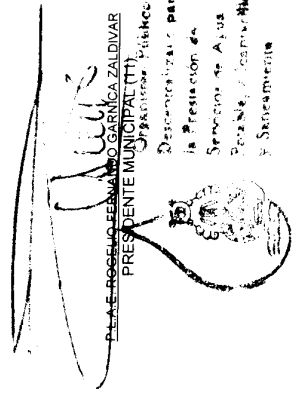 P.L.A.E. ROGELIO FERNANDO GARNICA ZALDIVAR
PRESIDENTE MUNICIPAL (11)
Organismo Público
Descentralizado para
la Prestación de
Servicios de Agua
Potable, Alcantarilla
y Saneamiento